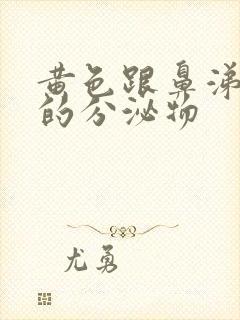 黄色跟鼻涕
的分泌物
尤勇